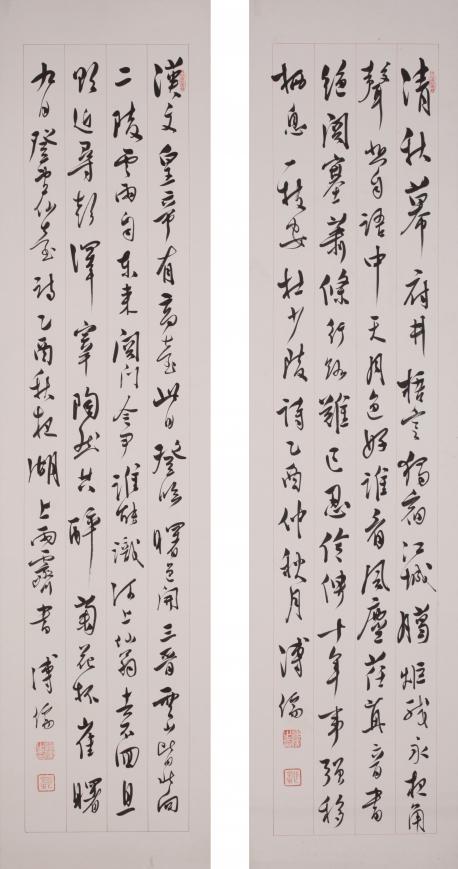 清秋幕府井梧寒獨宿江城蠟炬殘永夜角
聲悲自語中天月色好誰看風塵荏苒音書
絕關塞蕭條行路難已忍伶俜十年事強移
栖息一枝安杜少陵詩乙酉仲秋月溥儒
漢文皇帝有高臺此日登臨曙色開三晉雲山皆北向
二陵風雨自東來關門令尹誰能識河上仙翁去不回且
欲近尋彭澤宰陶然共醉菊花杯崔曙
九日登望仙臺詩乙酉秋夜湖上雨霽書溥儒